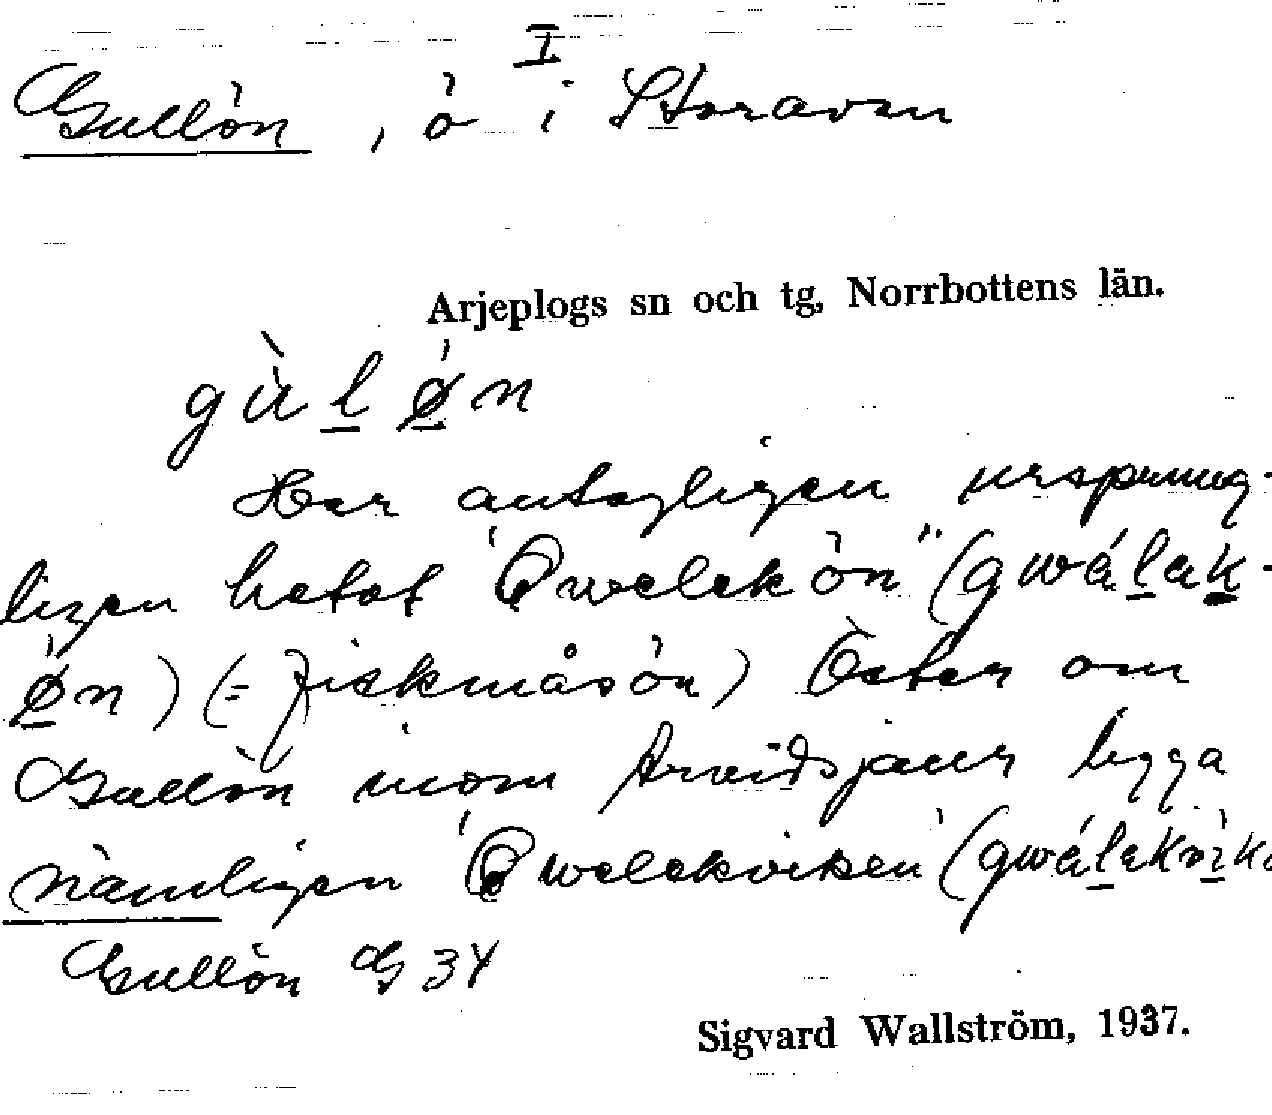 I
Gullön, ö i Storavan
Arjeplogs sn och tg, Norrbottens län.
gùl ø̀n
Har antagligen ursprung-
ligen hetat "Gwelekön" (gwálak-
øn) (= Fiskmåsön) Öster om
Gullön inom Arvidsjaur ligga
nämligen "Gwelekviken" (gwálakvìk
Gullön G 34
Sigvard Wallström, 1937.